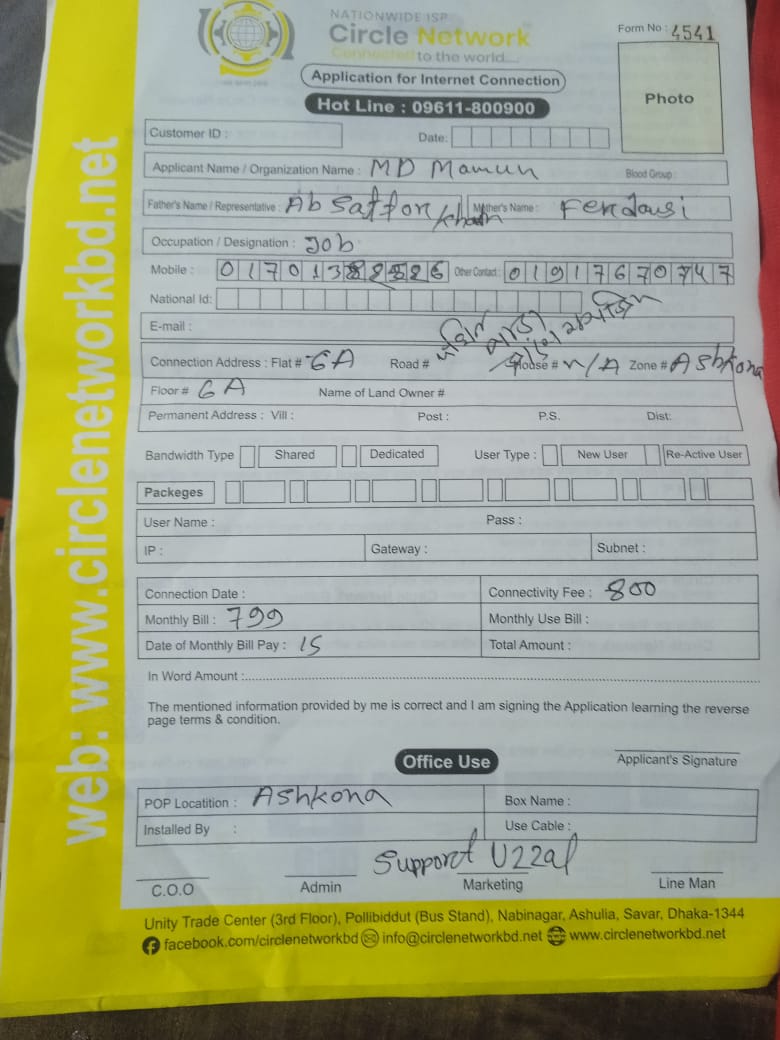 NATIONWIDE ISP
Circle Network
Connected to the world....
Form No : 4541
Application for Internet Connection
Hot Line : 09611-800900
Photo
Customer ID :
Date:
Applicant Name / Organization Name : MD Mamun Blood Group :
Father's Name / Representative : Ab Sattor khan Mother's Name : Ferdousi
Occupation / Designation : Job
Mobile : 017013 26 Other Contact : 01917670747
National Id:
E-mail :
Connection Address : Flat # 6A Road # House # n/A Zone # Ashkona
Floor # 6A Name of Land Owner #
Permanent Address : Vill : Post : P.S. Dist:
Bandwidth Type Shared Dedicated User Type : New User Re-Active User
Packeges
User Name : Pass :
IP : Gateway : Subnet :
Connection Date : Connectivity Fee : 800
Monthly Bill : 799 Monthly Use Bill :
Date of Monthly Bill Pay : 15 Total Amount :
In Word Amount :
The mentioned information provided by me is correct and I am signing the Application learning the reverse
page terms & condition.
Office Use
Applicant's Signature
POP Locatition : Ashkona Box Name :
Installed By : Use Cable :
Support Uzzal
C.O.O Admin Marketing Line Man
Unity Trade Center (3rd Floor), Pollibiddut (Bus Stand), Nabinagar, Ashulia, Savar, Dhaka-1344
facebook.com/circlenetworkbd info@circlenetworkbd.net www.circlenetworkbd.net
web: www.circlenetworkbd.net